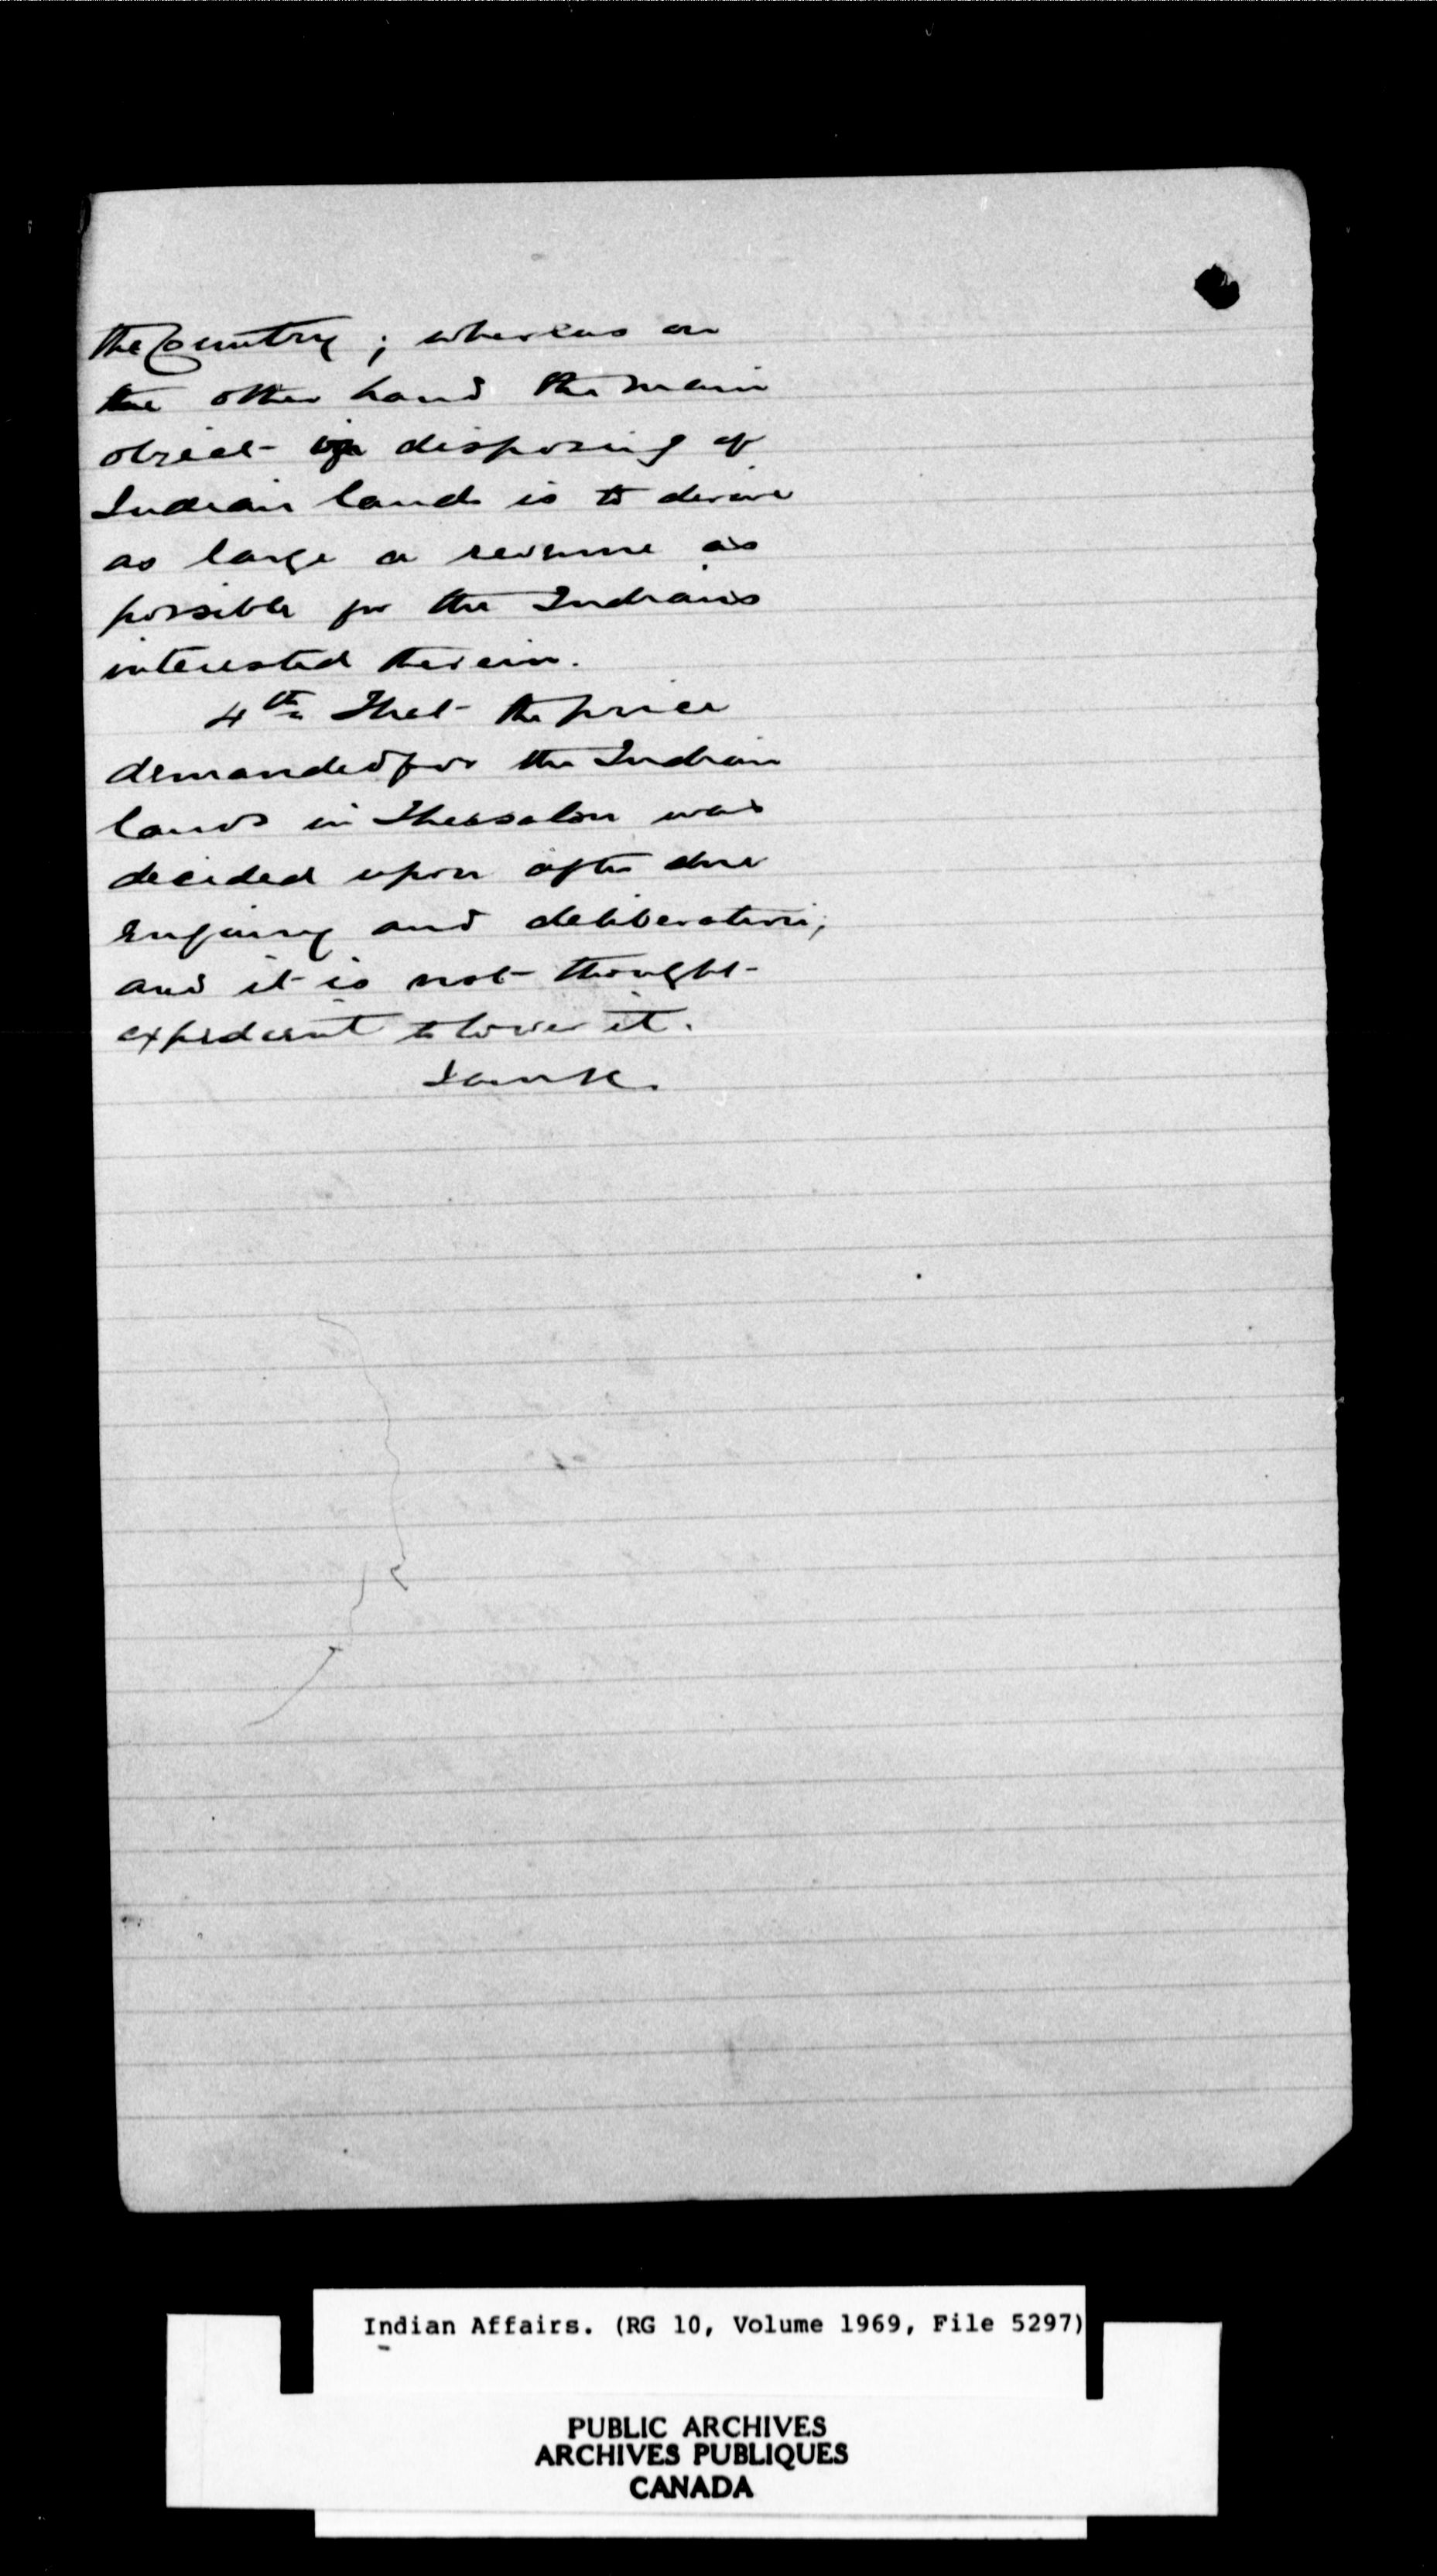 the Country ; whereas on
the other hand the main
object in disposing of
Indian lands is to derive
as large a revenue as
possible for the Indians
interested therein.
4th That the price
demanded for the Indian
lands in Thessalon was
decided upon after due
enquiry and deliberation;
and it is not thought
expedient to lower it.
Indian Affairs. (RG 10, Volume 1969, File 5297)
PUBLIC ARCHIVES
ARCHIVES PUBLIQUES
CANADA